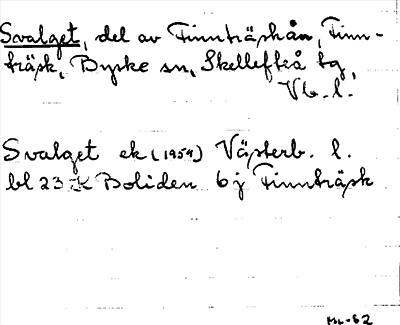 Svalget, del av Finnträskån, Finn-
träsk, Byske sn, Skellefteå tg,
Vb. l.
Svalget ek (1959) Västerb. l.
bl 23 K Boliden 6j Finnträsk